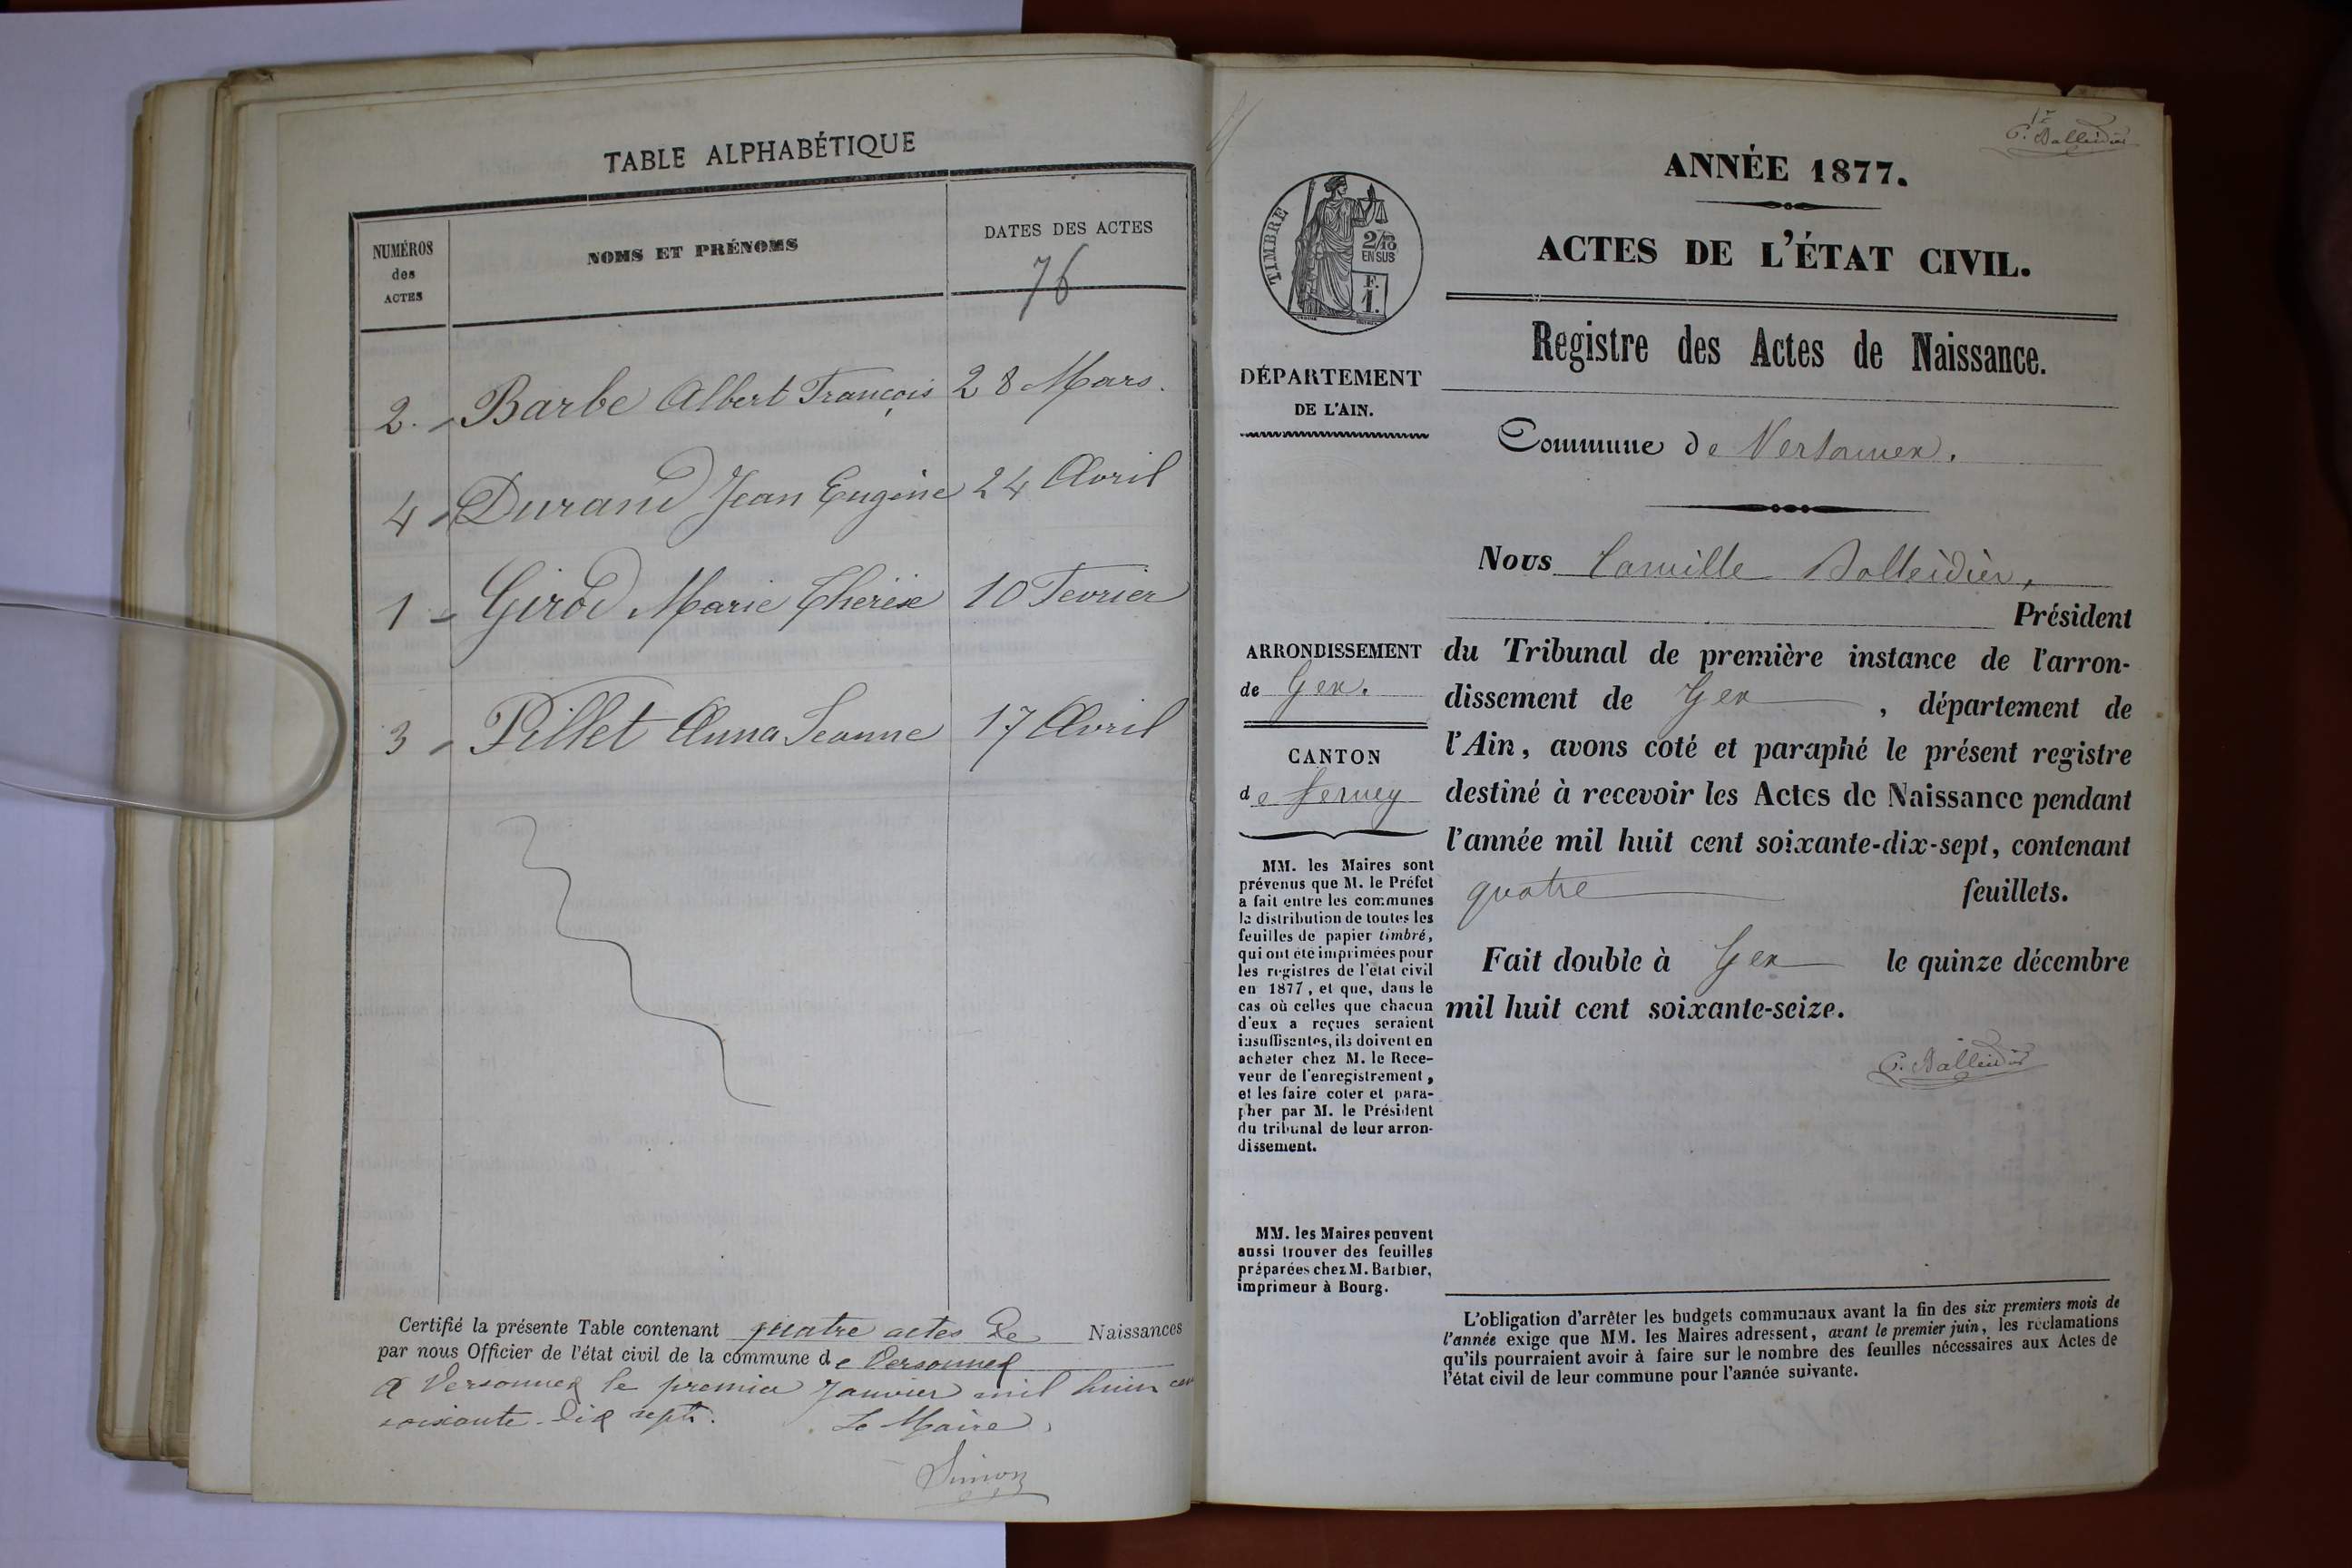 TABLE ALPHABÉTIQUE
NUMÉROS
des
ACTES
NOMS ET PRÉNOMS
DATES DES ACTES
76
2. Barbe Albert François 28 Mars.
4 Durand Jean Eugène 24 Avril
1 Girod Marie Thérèse 10 Fevrier
3 Pillet Anna Jeanne 17 Avril
Certifié la présente Table contenant quatre actes de Naissances
par nous Officier de l'état civil de la commune de Versonnex
A Versonnex le premier Janvier mil huit cent
soixante-dix sept. Le Maire,
Simon
1r
C. Dalleidier
ANNÉE 1877.
ACTES DE L'ÉTAT CIVIL.
Registre des Actes de Naissance.
TIMBRE
2/10
EN SUS
F.
1.
DÉPARTEMENT
DE L'AIN.
Commune de Versonnex.
Nous Camille Dalleidier,
Président
du Tribunal de première instance de l'arron-
dissement de Gex, département de
l'Ain, avons coté et paraphé le présent registre
destiné à recevoir les Actes de Naissance pendant
l'année mil huit cent soixante-dix-sept, contenant
quatre feuillets.
Fait double à Gex le quinze décembre
mil huit cent soixante-seize.
C. Dalleidier
ARRONDISSEMENT
de Gex.
CANTON
de Ferney
MM. les Maires sont
prévenus que M. le Préfet
a fait entre les communes
la distribution de toutes les
feuilles de papier timbré,
qui ont été imprimées pour
les registres de l'état civil
en 1877, et que, dans le
cas où celles que chacun
d'eux a reçues seraient
insuffisantes, ils doivent en
acheter chez M. le Rece-
veur de l'enregistrement,
et les faire coter et para-
pher par M. le Président
du tribunal de leur arron-
dissement.
MM. les Maires peuvent
aussi trouver des feuilles
préparées chez M. Barbier,
imprimeur à Bourg.
L'obligation d'arrêter les budgets communaux avant la fin des six premiers mois de
l'année exige que MM. les Maires adressent, avant le premier juin, les réclamations
qu'ils pourraient avoir à faire sur le nombre des feuilles nécessaires aux Actes de
l'état civil de leur commune pour l'année suivante.